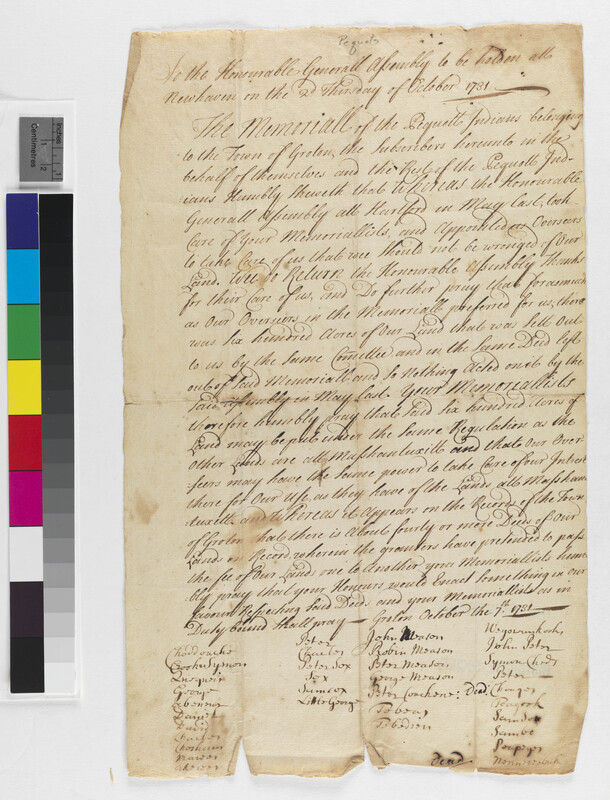 Pequots
To the Honourable Generall Assembly to be holden att
Newhaven on the 2d Thursday of October 1731
The Memoriall of the Pequott Indians belonging
to the Town of Groton, the Subscribers hereunto in the
behalf of themselves and the Rest of the Pequott Ind-
ians Humbly sheweth that whereas the Honourable
Generall Assembly att Hartford in May last, took
Care of Your Memoriallists, and Appointed us Overseers
to take Care of us that wee should not be wronged of Our
Land. Wee do Return the Honourable Assembly Thanks
for their Care of us, and Do further pray that forasmuch
as Our Overseers in the Memoriall preferred for us, there
was six hundred Acres of Our Land that was sett Out
to us by the Same Comittee and in the Same Deed left
out of said Memoriall and so Nothing Acted on it by the
Said Assembly in May last. Your Memoriallists
therefore humbly pray that said six hundred Acres of
Land may be put under the Same Regulation as the
other Lands are att Mashantuxitt and that Our Over
seers may have the Same power to take Care of our Intrest
there for Our Use, as they have of the Lands att Mashan
tuxitt. and whereas it Appears on the Records of the Town
of Groton that there is About fourty or more Deeds of Our
Lands on Record wherein the grantors have pretended to pass
the fee of Our Lands one to Another your Memoriallists hum
bly pray that your Honours would Enact something in our
favour Respecting said Deeds and your Memoriallists as in
Duty bound shall pray— Groton October the 7th 1731
Choddoache
Cooshusymon
Quequoin
George
Abenner
Daniel
David
Charles
Peter
Charles
Peter Sox
Sox
Samson
Little George
John Meason
Robin Meason
Peter Meason
George Meason
Peter Coachene: Dead:
Tobeas
John Peter
Symon Chods
Peter
Charges
Samson
Sambo
Dead